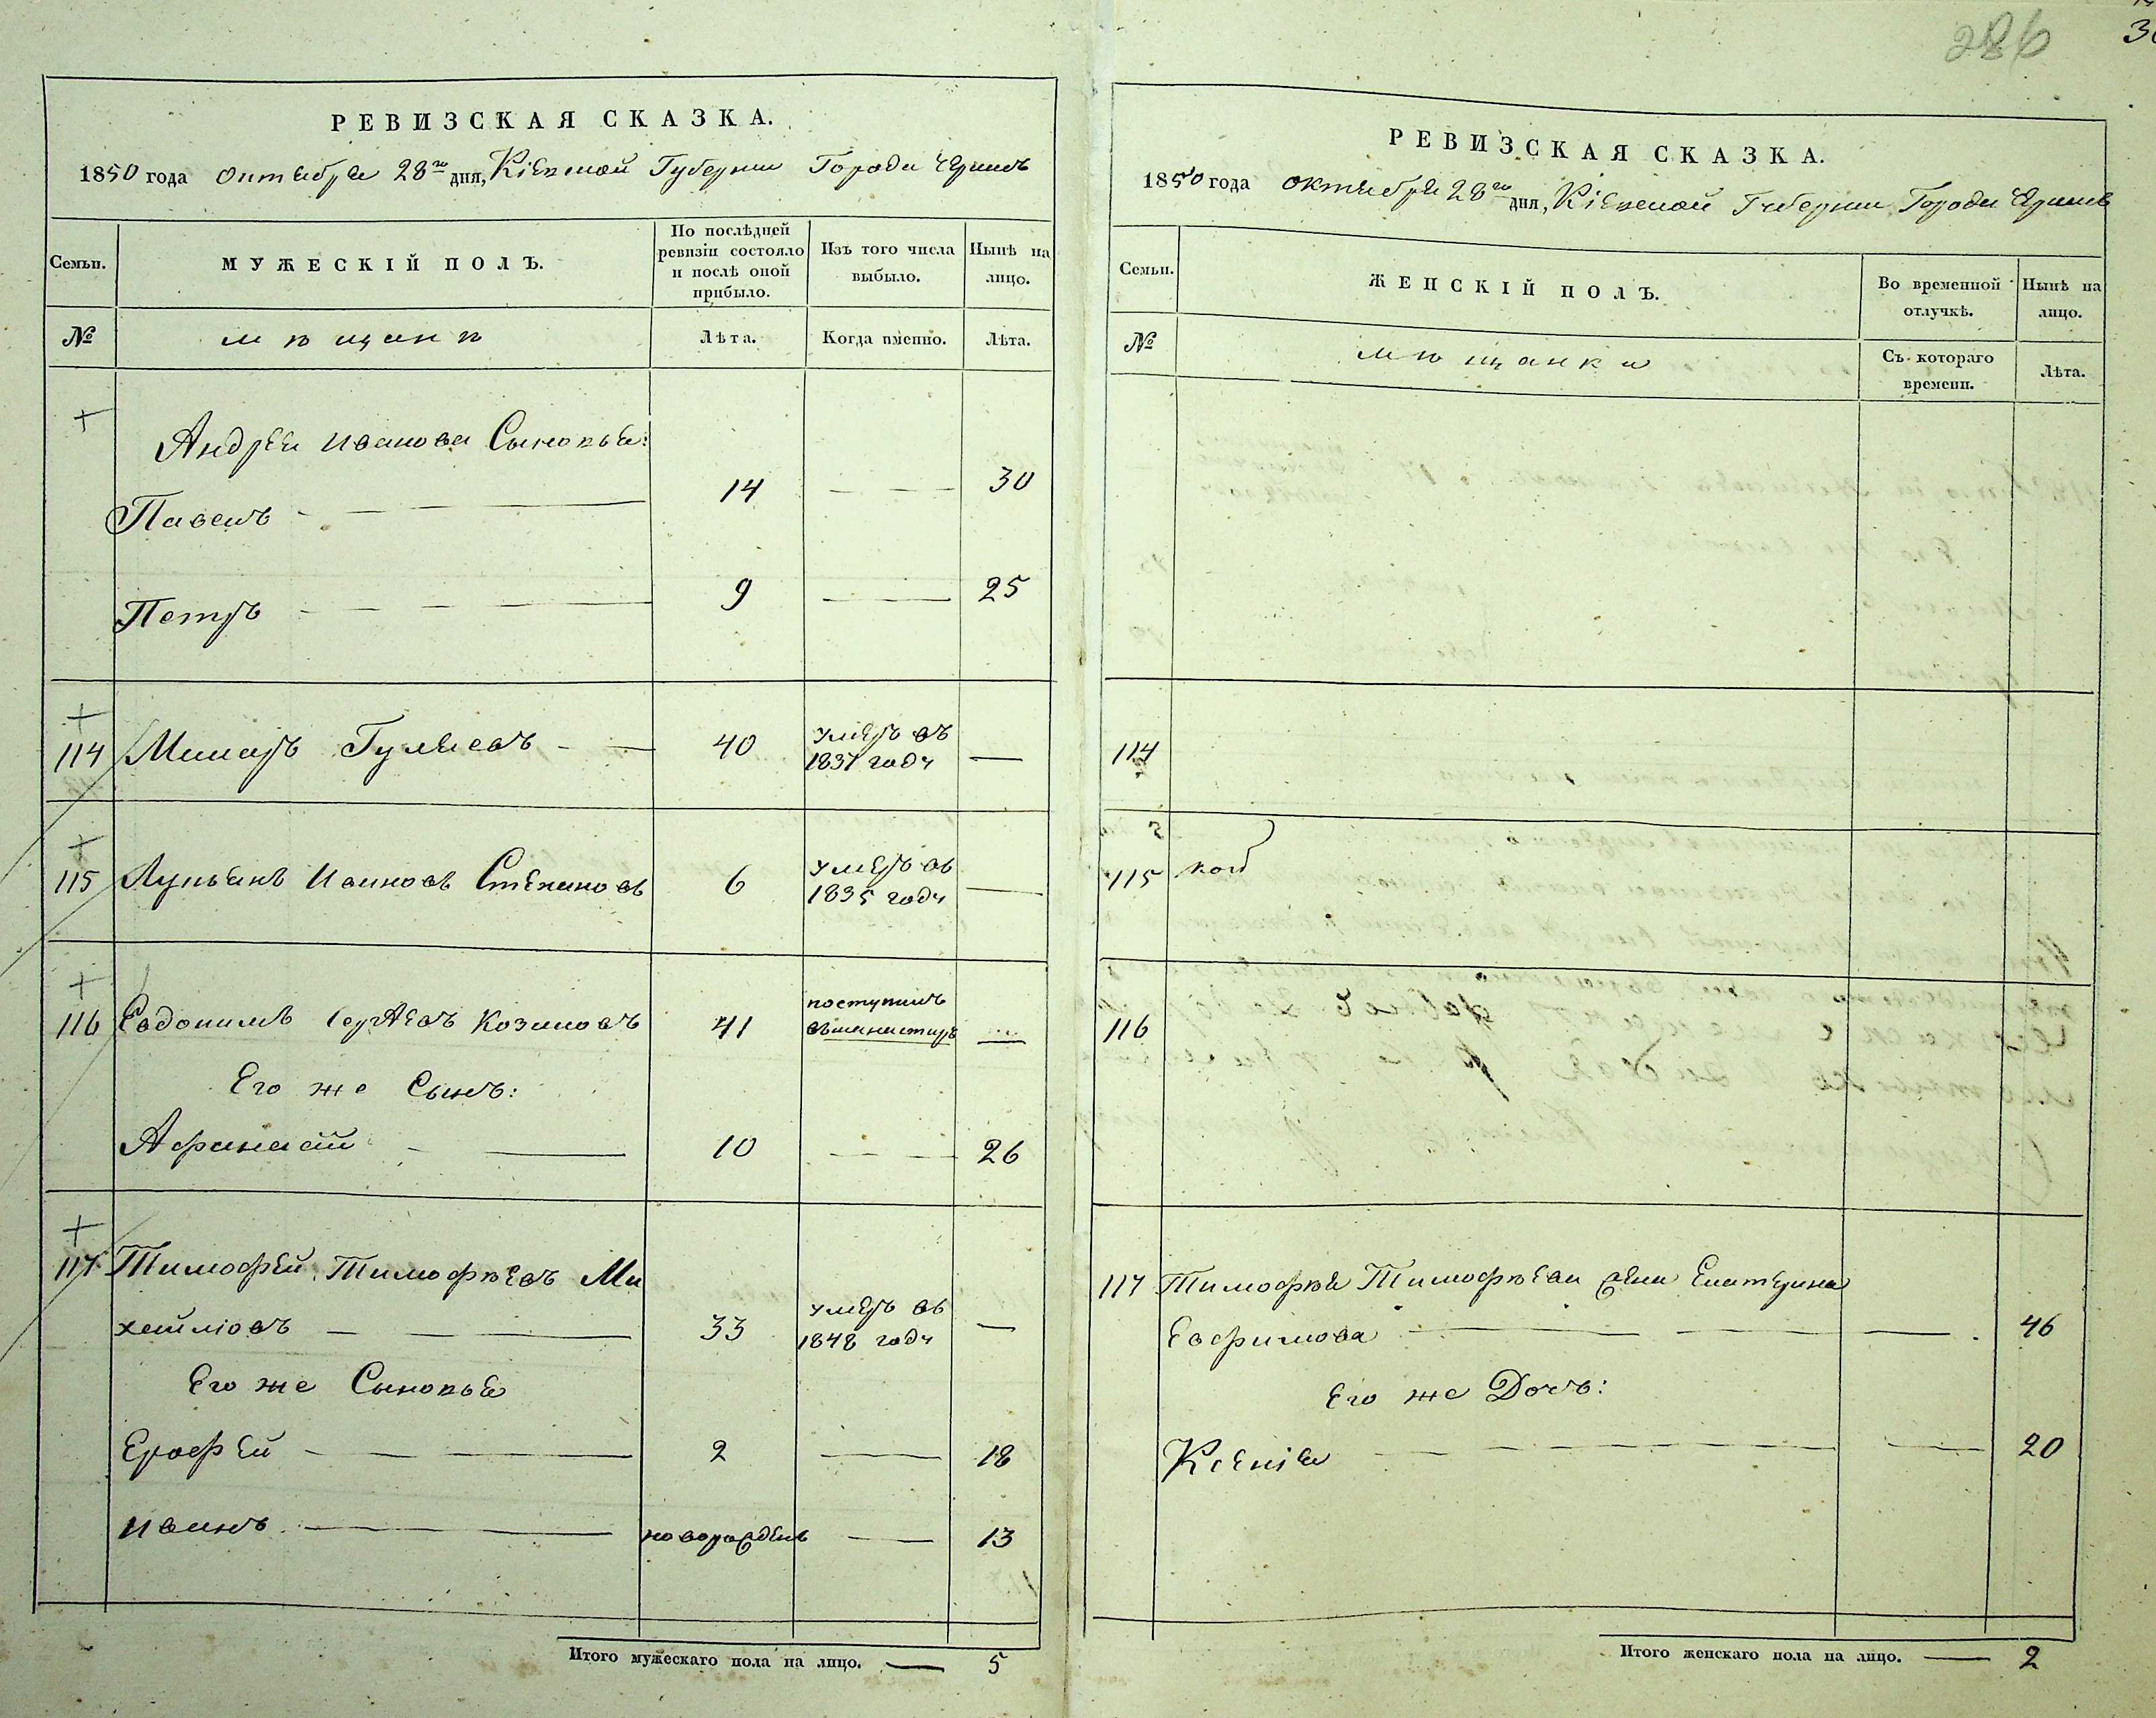 286
РЕВИЗСКАЯ СКАЗКА.
1850 года октября 28го дня, Кіевской Губерніи Города
Семьи.
МУЖЕСКІЙ ПОЛЪ.
По послѣдней ревизіи состояло и послѣ оной прибыло.
Изъ того числа выбыло.
Нынѣ на лицо.
№
мѣщанѣ
Лѣта.
Когда именно.
Лѣта.
Андрея Иванова Сыновья:
Павелъ 14 30
Петръ 9 25
114 Гуляевъ 40 умеръ въ
1837 году
115 Лукьянъ Ивановъ Степановъ 6 умеръ въ
1835 году
116 Евдокимъ Сергѣевъ Козаковъ 41 поступилъ
въ манастиръ
Его же Сынъ:
Афанасій 10 26
117 Тимофей Тимофѣевъ Ми
хайловъ 33 умеръ въ
1848 году
Его же Сыновья
Ерофей 2 18
Иванъ новорожденъ 13
Итого мужескаго пола на лицо. 5
РЕВИЗСКАЯ СКАЗКА.
1850 года октября 28го дня, Кіевской Губерніи Города
Семьи.
ЖЕНСКІЙ ПОЛЪ.
Во временной отлучкѣ.
Нынѣ на лицо.
№
мѣщанки
Съ котораго времени.
Лѣта.
114
115
116
117 Тимофѣя Тимофѣева жена Екатерина
Евфимова 46
Его же Дочь:
Ксенія 20
Итого женскаго пола на лицо. 2